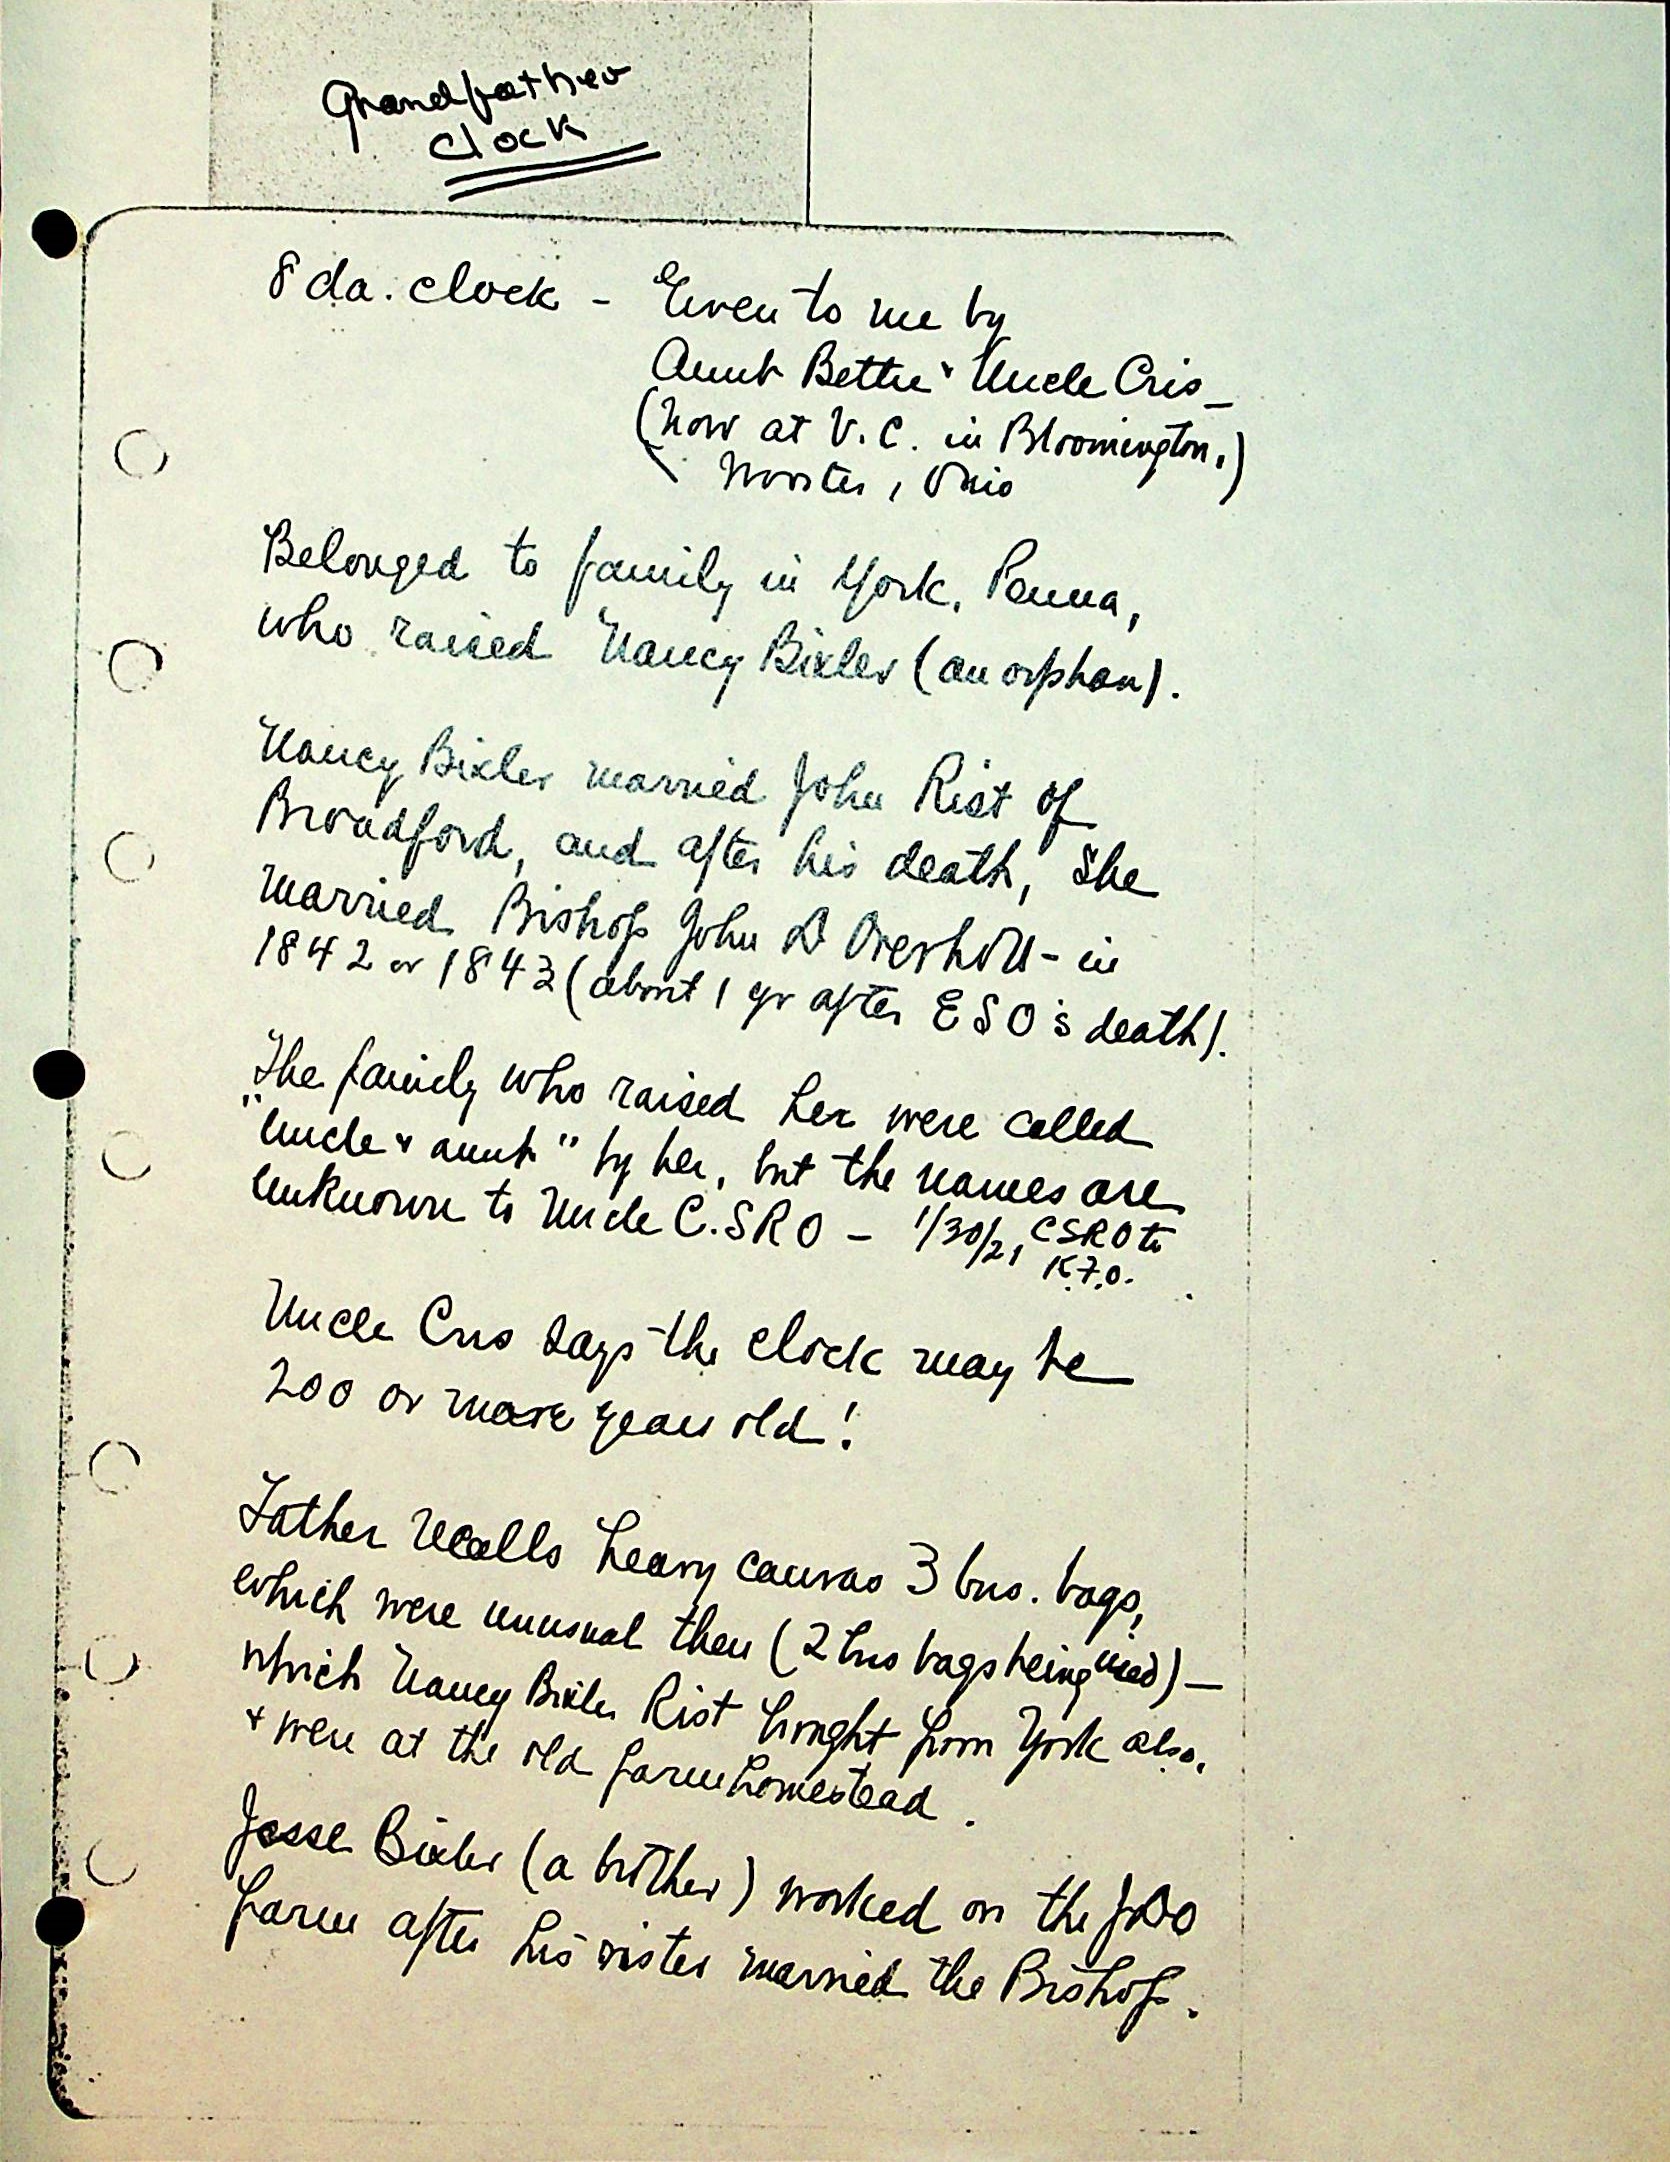 Grandfather
Clock
8 da. clock - Given to me by
Aunt Bettie & Uncle Cris -
(now at V. C. in Bloomington,)
Wooster, Ohio
Belonged to family in York, Penna,
who raised Nancy Bixler (an orphan).
Nancy Bixler married John Rist of
Broadford, and after his death, she
married Bishop John D Overholt - in
1842 or 1843 (about 1 yr after E S O's death).
The family who raised her were called
"Uncle & aunt" by her, but the names are
unknown to Uncle C. S R O - 1/30/21, CSRO to
K.F.O.
Uncle Cris says the clock may be
200 or more years old!
Father recalls heavy canvas 3 bus. bags,
which were unusual then (2 bus bags being used) -
which Nancy Bixler Rist brought from York also,
& were at the old farm homestead.
Jesse Bixler (a brother) worked on the JDO
farm after his sister married the Bishop.